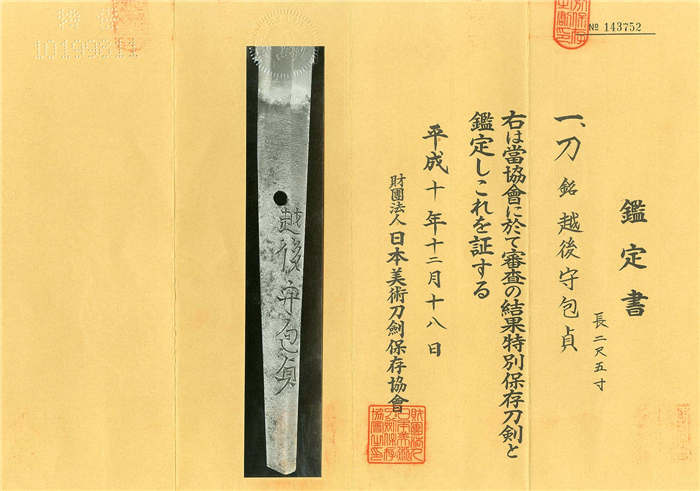 № 143752
鑑定書
一、刀 銘 越後守包貞
長二尺五寸
右は當協會に於て審査の結果特別保存刀剣と
鑑定しこれを証する
平成十年十二月十八日
財團法人 日本美術刀劍保存協會
越後守包貞